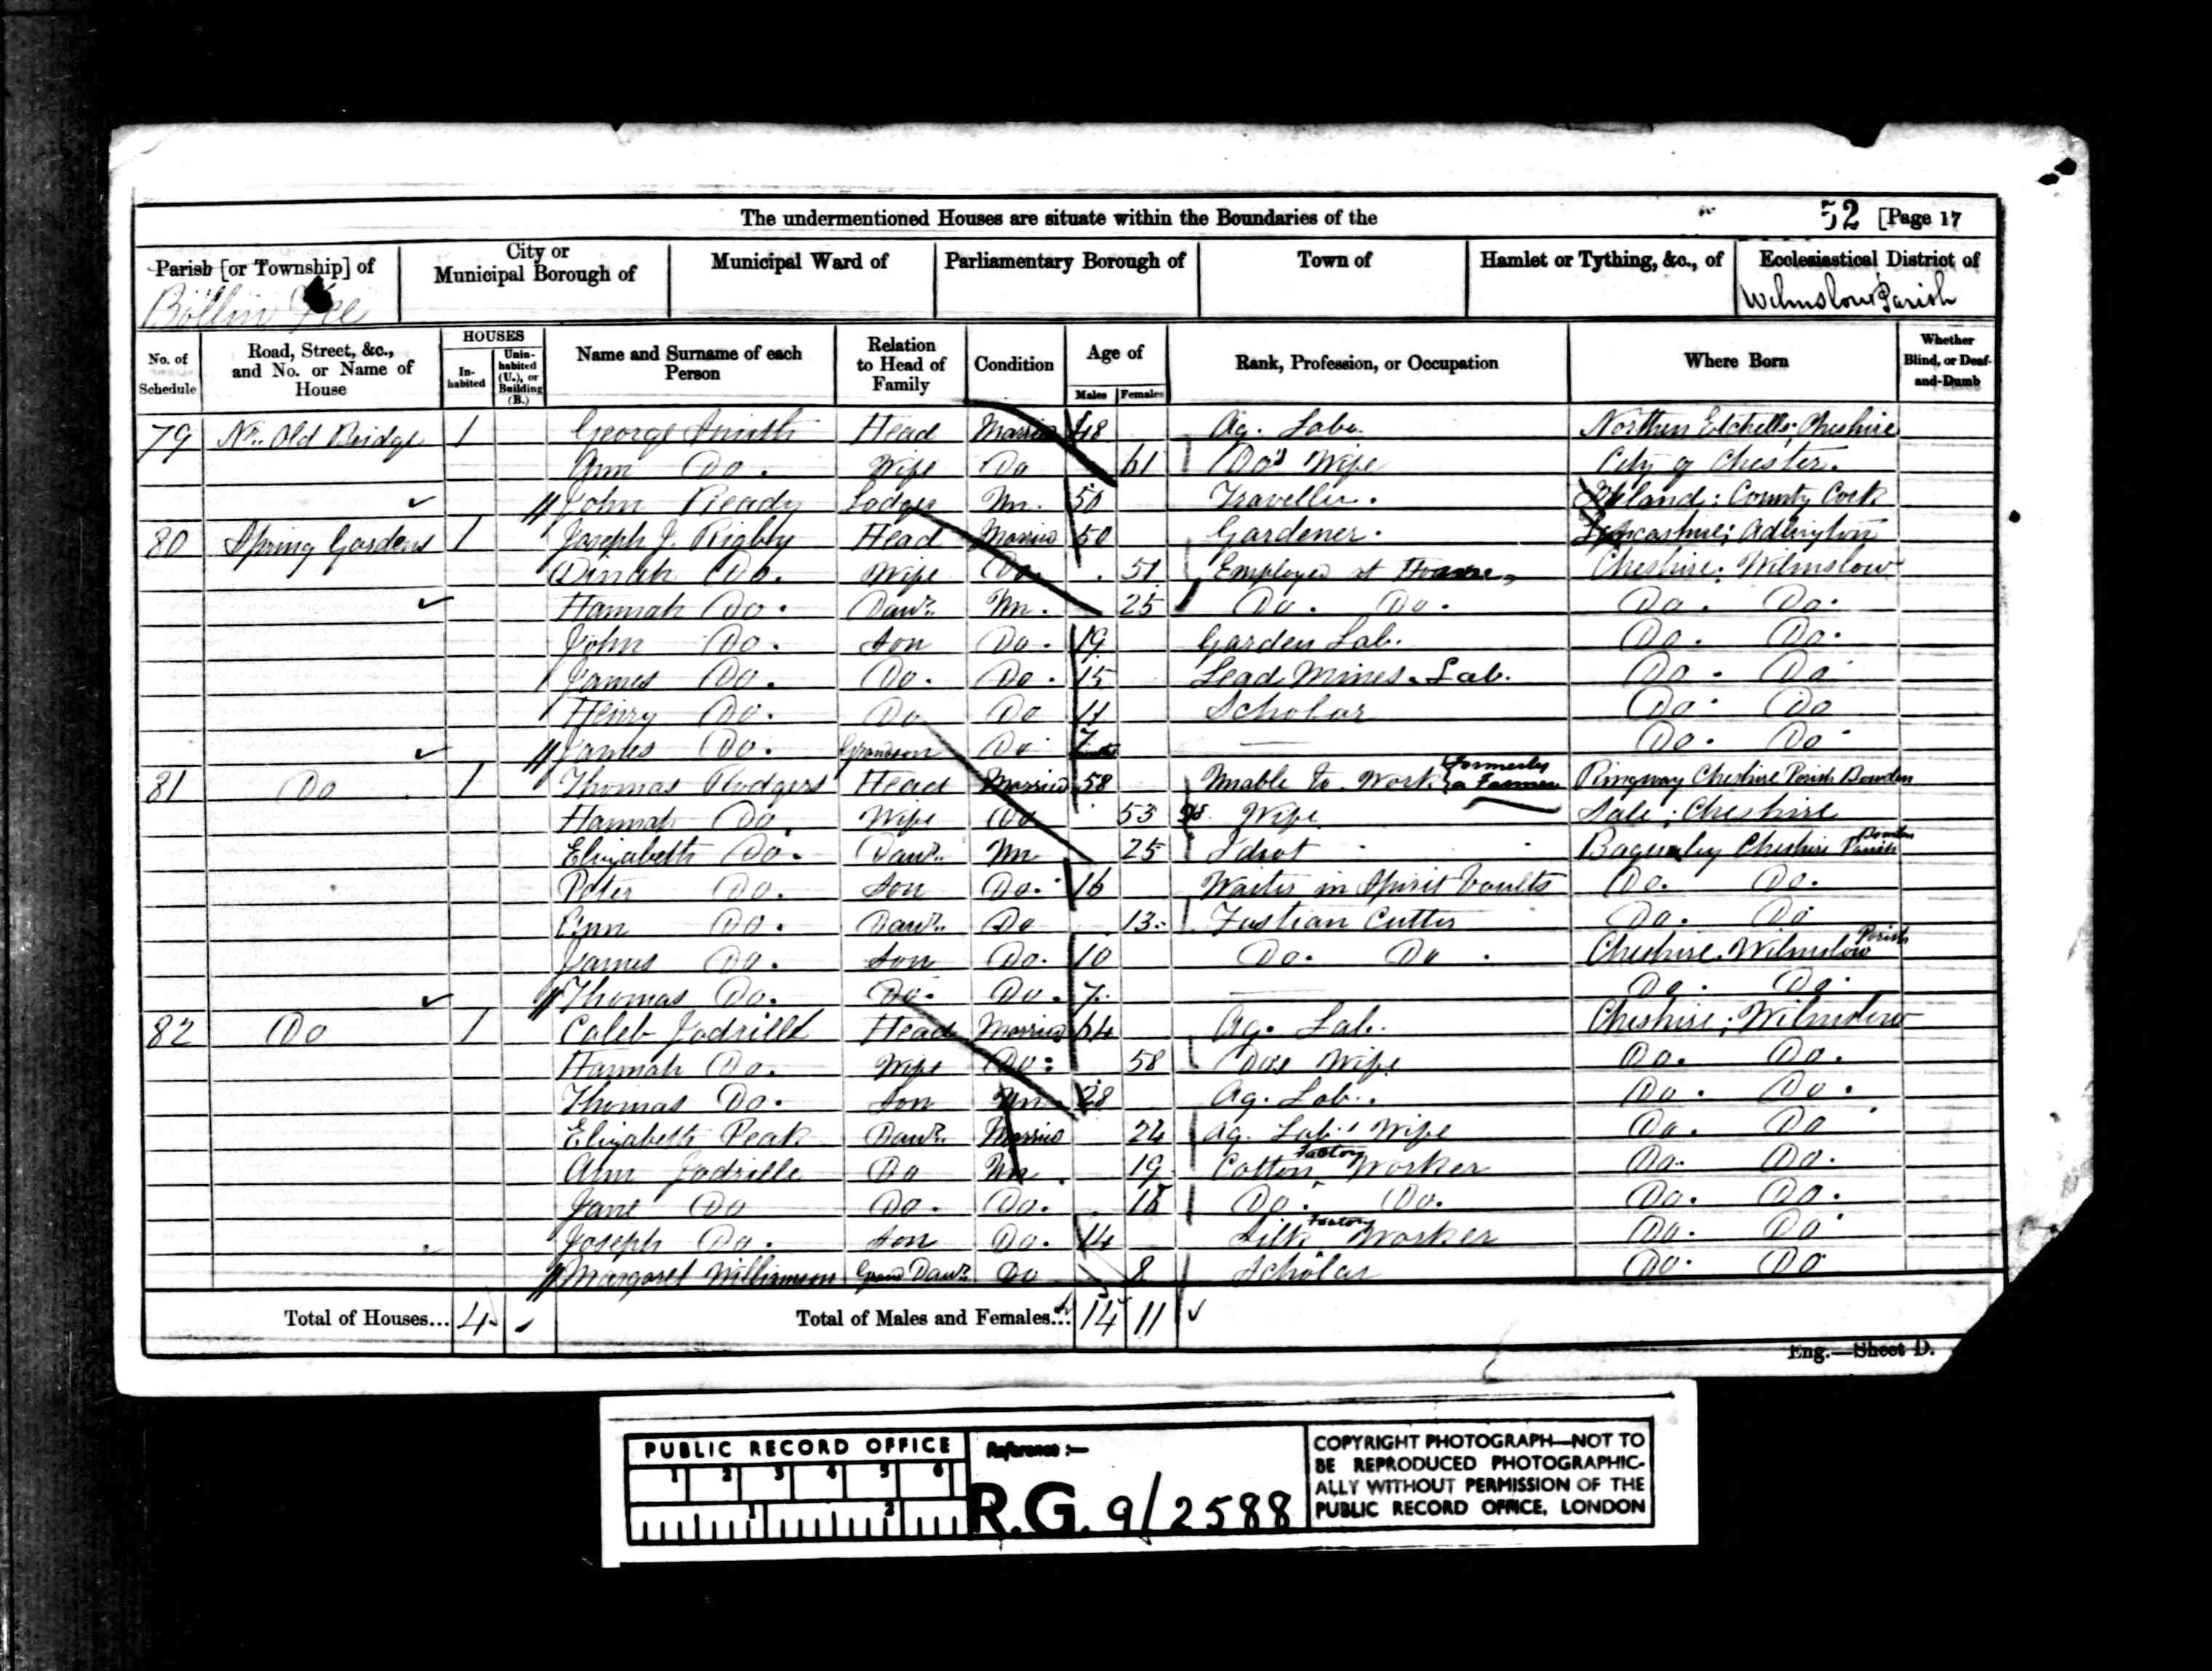 The undermentioned Houses are situate within the Boundaries of the 52 [Page 17
Parish [or Township] of City or Municipal Borough of Municipal Ward of Parliamentary Borough of Town of Hamlet or Tything, &c., of Ecclesiastical District of
Bollin Fee Wilmslow Parish
No. of Schedule Road, Street, &c., and No. or Name of House HOUSES Inhabited Uninhabited (U.), or Building (B.) Name and Surname of each Person Relation to Head of Family Condition Age of Males Females Rank, Profession, or Occupation Where Born Whether Blind, or Deaf-and-Dumb
79 Nr. Old Bridge 1 George Smith Head Married 48 Ag. Lab. Northen Etchells; Cheshire
Ann Do. Wife Do 61 Do's Wife City of Chester.
John Ready Lodger Un. 50 Traveller. Ireland; County Cork
80 Spring Gardens 1 Joseph J. Rigby Head Married 50 Gardener. Lancashire; Adlington
Dinah Do. Wife Do. 51 Employed at Home Cheshire; Wilmslow
Hannah Do. Daur. Un. 25 Do. Do. Do. Do.
John Do. Son Do. 19 Garden Lab. Do. Do.
James Do. Do. Do. 15 Lead Mines Lab. Do. Do
Henry Do. Do Do 11 Scholar Do. Do
James Do. Grandson Do 7 months Do. Do
81 Do 1 Thomas Rodgers Head Married 58 Unable to Work formerly a Farmer Ringway Cheshire Parish Bowdon
Hannah Do. Wife Do 53 Wife Sale; Cheshire
Elizabeth Do. Daur. Un 25 Idiot Baguley Cheshire Bowdon Parish
Peter Do. Son Do. 16 Waiter in Spirit Vaults Do. Do.
Ann Do. Daur. Do 13 Fustian Cutter Do. Do
James Do. Son Do. 10 Do. Do. Cheshire. Wilmslow Parish
Thomas Do. Do. Do. 7 Do. Do.
82 Do 1 Caleb Jodrille Head Married 64 Ag. Lab. Cheshire; Wilmslow
Hannah Do. Wife Do: 58 Do's Wife Do. Do.
Thomas Do. Son Un 28 Ag. Lab. Do. Do.
Elizabeth Peak Daur. Married 24 Ag. Lab's Wife Do. Do
Ann Jodrille Do Un. 19 Cotton Factory Worker Do. Do.
Jane Do Do. Do. 16 Do. Do. Do. Do.
Joseph Do. Son Do. 14 Silk Factory Worker Do. Do
Margaret Williamson Grand Daur. Do 8 Scholar Do. Do
Total of Houses... 4 Total of Males and Females... 14 11
Eng.—Sheet D.
PUBLIC RECORD OFFICE
1 2 3 4 5 6
1 2
Reference :—
R.G. 9/2588
COPYRIGHT PHOTOGRAPH—NOT TO
BE REPRODUCED PHOTOGRAPHIC-
ALLY WITHOUT PERMISSION OF THE
PUBLIC RECORD OFFICE, LONDON